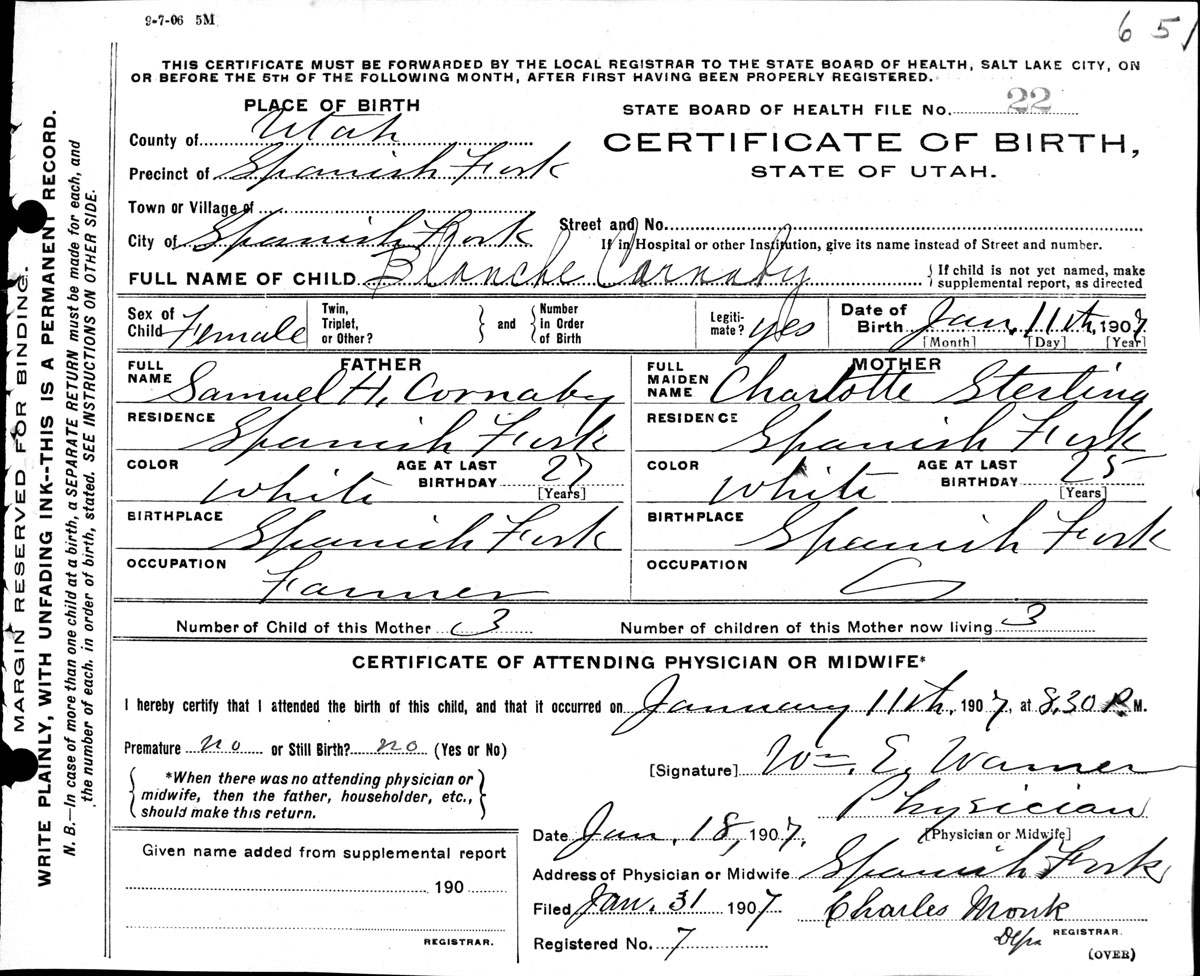 9-7-06 5M
651
THIS CERTIFICATE MUST BE FORWARDED BY THE LOCAL REGISTRAR TO THE STATE BOARD OF HEALTH, SALT LAKE CITY, ON
OR BEFORE THE 5TH OF THE FOLLOWING MONTH, AFTER FIRST HAVING BEEN PROPERLY REGISTERED.
PLACE OF BIRTH
STATE BOARD OF HEALTH FILE No. 22
County of Utah
CERTIFICATE OF BIRTH,
Precinct of Spanish Fork
STATE OF UTAH.
Town or Village of
Street and No.
City of Spanish Fork
If in Hospital or other Institution, give its name instead of Street and number.
FULL NAME OF CHILD Blanche Cornaby
If child is not yet named, make
supplemental report, as directed
Sex of Child Female
Twin, Triplet, or Other?
and
Number in Order of Birth
Legiti-mate? yes
Date of Birth Jan. 11th, 1907
[Month] [Day] [Year]
FATHER
FULL NAME Samuel H. Cornaby
RESIDENCE Spanish Fork
COLOR White
AGE AT LAST BIRTHDAY 27
[Years]
BIRTHPLACE Spanish Fork
OCCUPATION Farmer
MOTHER
FULL MAIDEN NAME Charlotte Sterling
RESIDENCE Spanish Fork
COLOR White
AGE AT LAST BIRTHDAY 25
[Years]
BIRTHPLACE Spanish Fork
OCCUPATION
Number of Child of this Mother 3
Number of children of this Mother now living 3
CERTIFICATE OF ATTENDING PHYSICIAN OR MIDWIFE*
I hereby certify that I attended the birth of this child, and that it occurred on January 11th, 1907, at 8.30 P M.
Premature no or Still Birth? no (Yes or No)
*When there was no attending physician or
midwife, then the father, householder, etc.,
should make this return.
[Signature] Wm. E. Warner
Physician
[Physician or Midwife]
Date Jan. 18, 1907,
Address of Physician or Midwife Spanish Fork
Filed Jan. 31 1907
Charles Monk
Depu REGISTRAR.
Registered No. 7
(OVER)
Given name added from supplemental report
190
REGISTRAR.
MARGIN RESERVED FOR BINDING.
WRITE PLAINLY, WITH UNFADING INK--THIS IS A PERMANENT RECORD.
N. B.—In case of more than one child at a birth, a SEPARATE RETURN must be made for each, and
the number of each. in order of birth, stated. SEE INSTRUCTIONS ON OTHER SIDE.